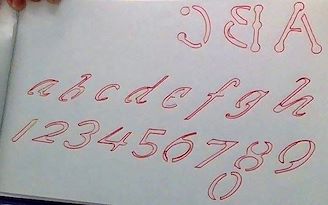 C B A
a b c d e f g h
1 2 3 4 5 6 7 8 9
0